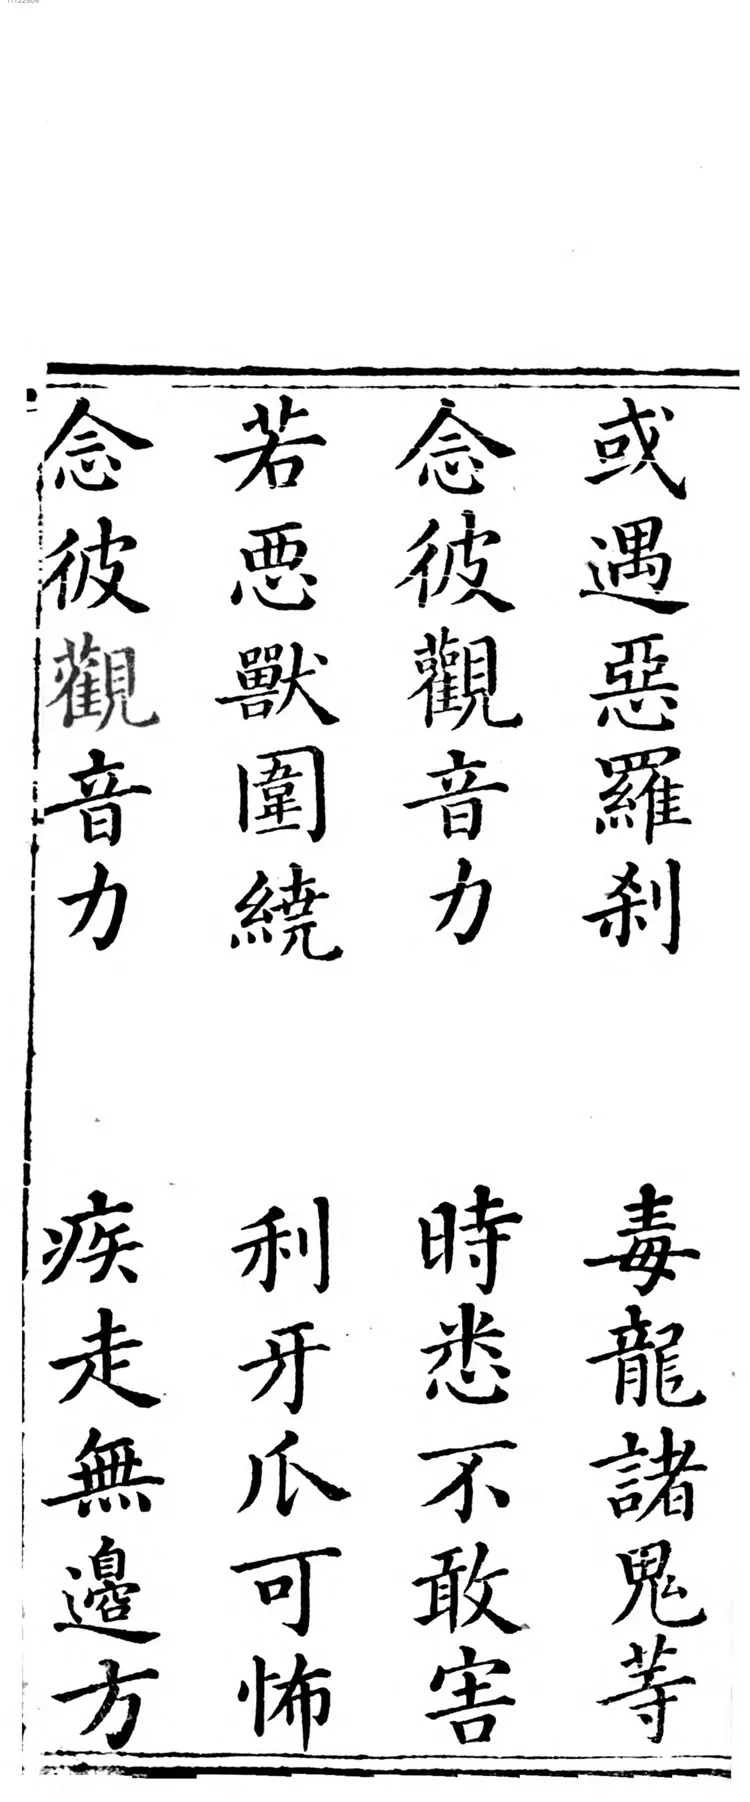 或遇惡羅刹　毒龍諸鬼等
念彼觀音力　時悉不敢害
若悪獸圍繞　利牙爪可怖
念彼觀音力　疾走無邊方